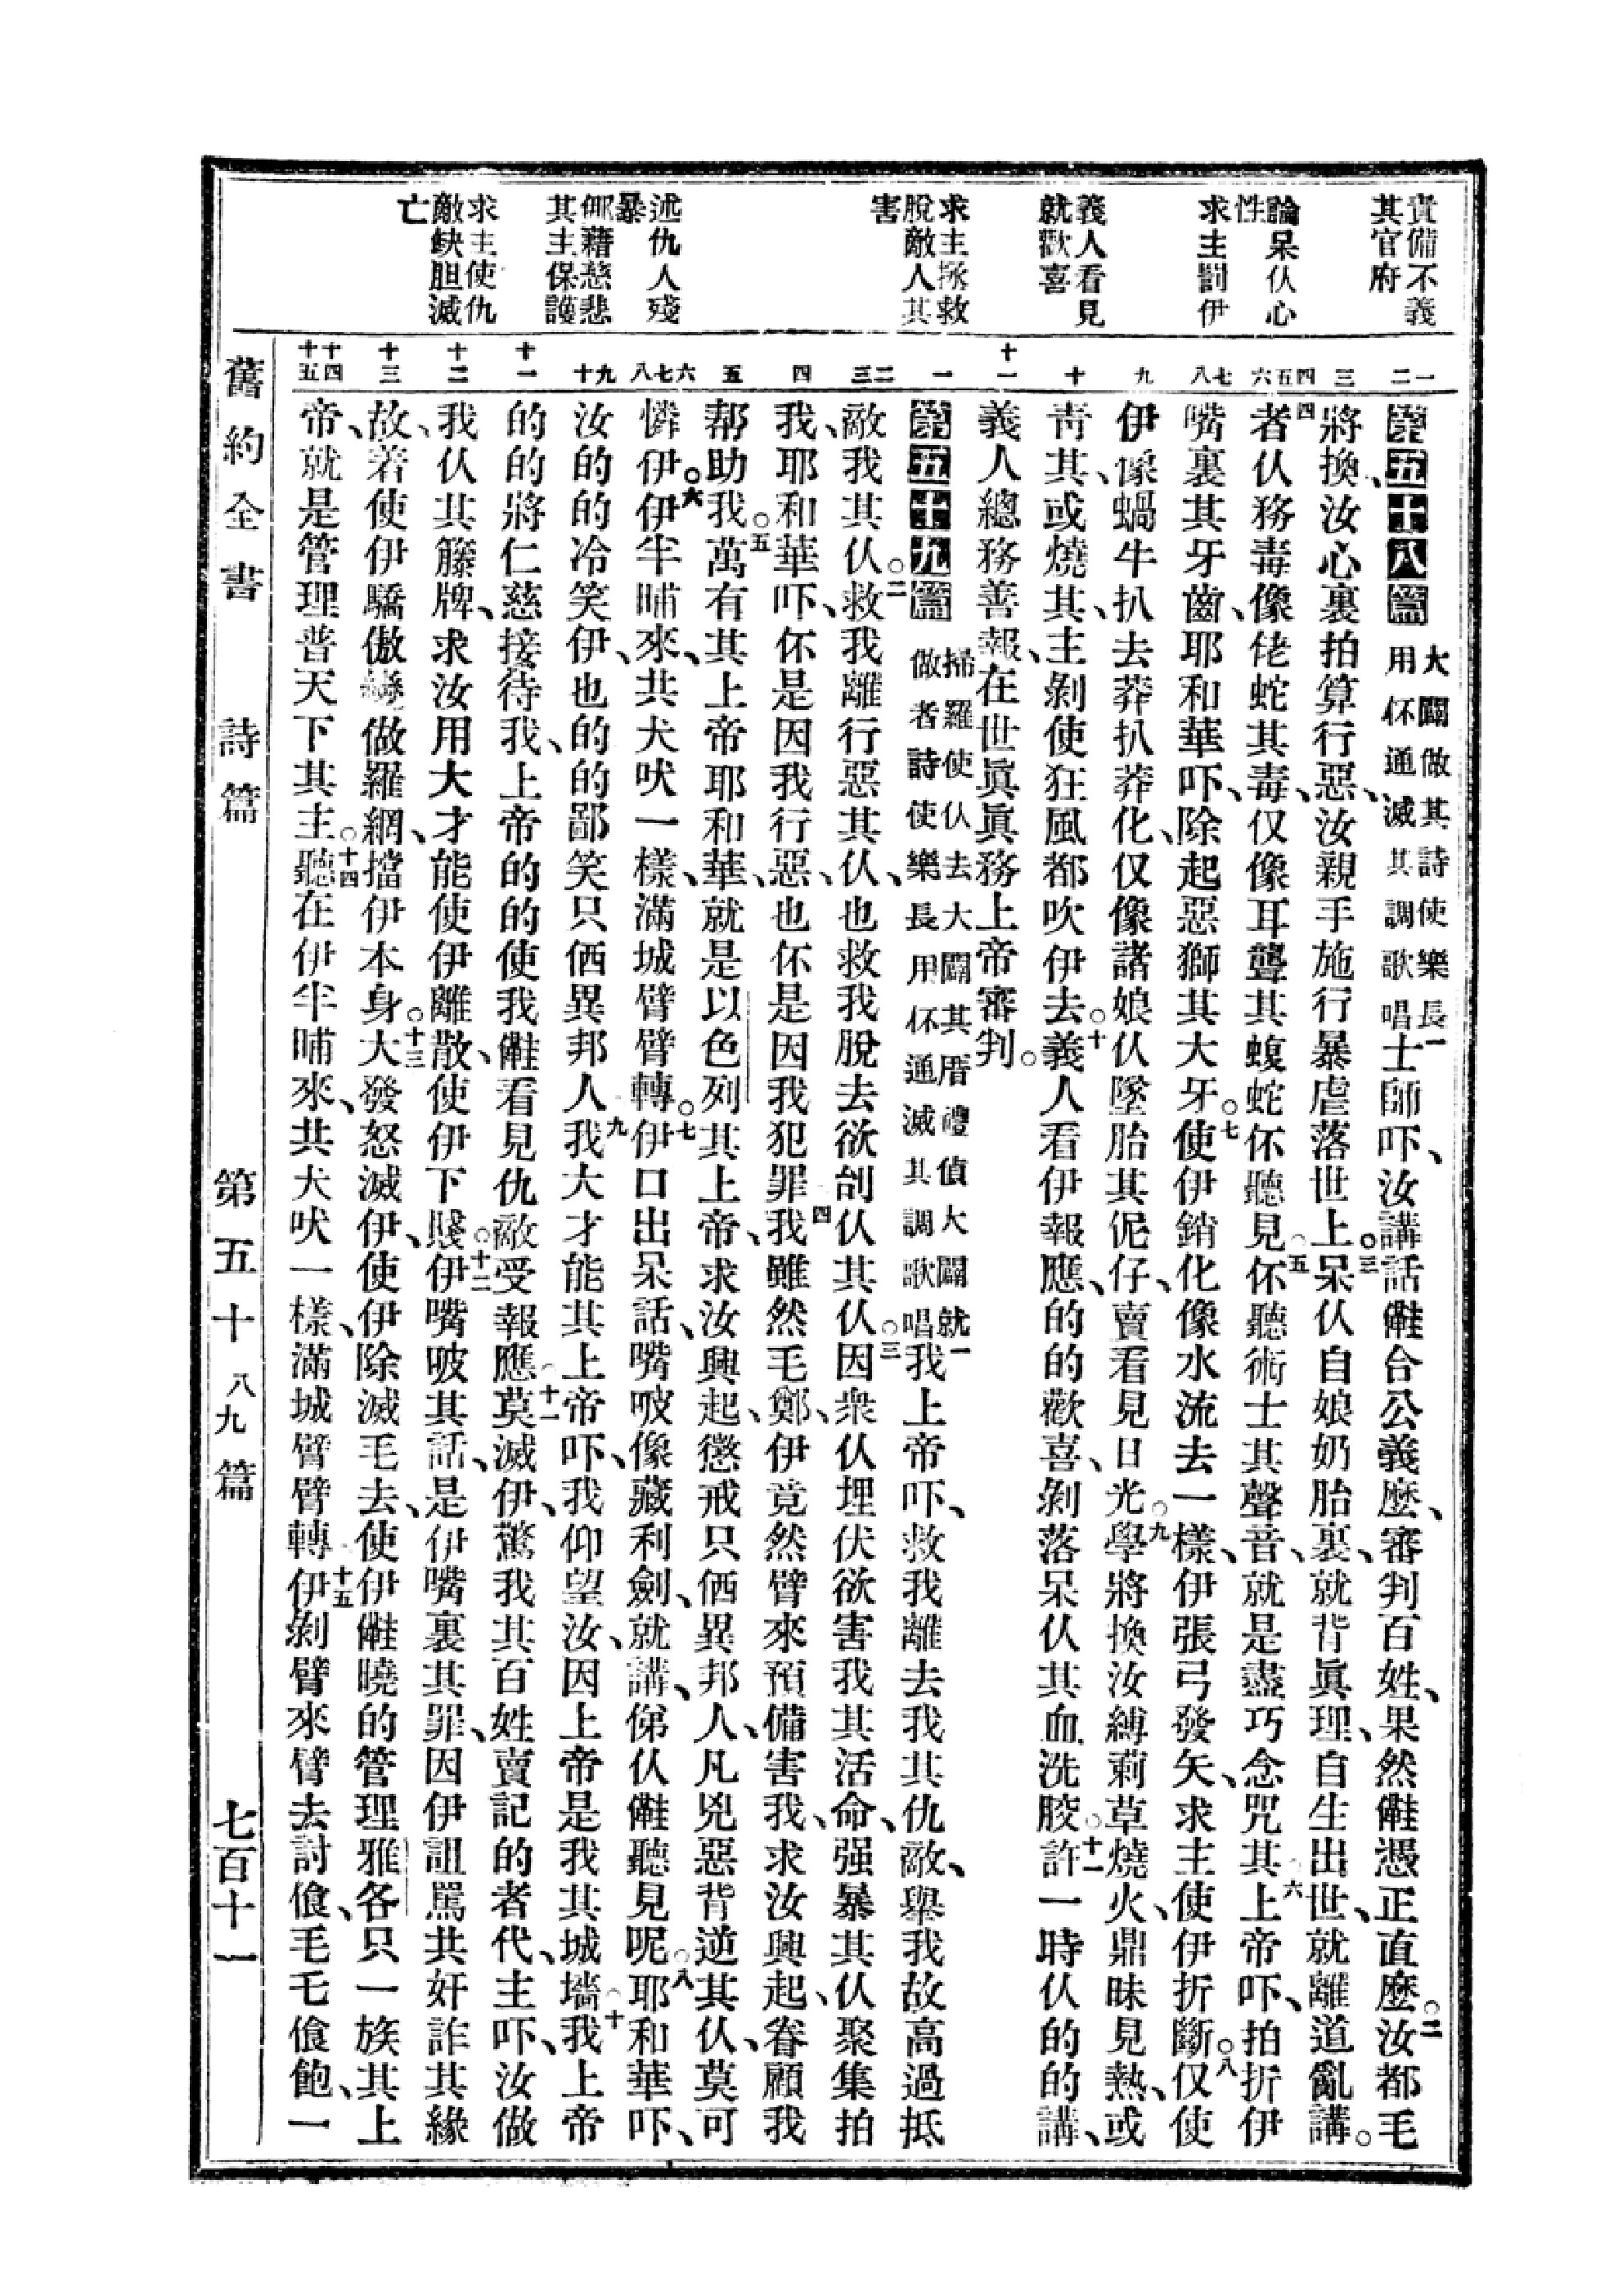 責備不義
其官府
論呆仈心
性
求主罰伊
義人看見
就歡喜
求主拯救
脫敵人其
害
述仇人殘
暴
藉慈悲
其主保護
求主使仇
敵缺胆滅
亡
一 二 三 四 五 六 七 八 九 十 十一 一 二 三 四 五 六 七 八 九 十 十一 十二 十三 十四 十五
第五十八篇 大闢做其詩使樂長用伓通滅其調歌唱 一士師吓、汝講話𣍐合公義麽、審判百姓、果然𣍐憑正直麽。○二汝都毛
將換汝心裏拍算行惡、汝親手施行暴虐落世上。○三呆仈自娘奶胎裏、就背眞理、自生出世、就離道亂講。
四者仈務毒像佬蛇其毒、仅像耳聾其蝮蛇伓聽見○五伓聽術士其聲音、就是盡巧念咒其、○六上帝吓、拍折伊
嘴裏其牙齒、耶和華吓、除起惡獅其大牙。○七使伊銷化像水流去一樣、伊張弓發矢、求主使伊折斷。○八仅使
伊像蝸牛扒去莽扒莽化、仅像諸娘仈墜胎其伲仔、賣看見日光○九學將換汝縛莿草燒火、鼎昧見熱、或
靑其、或燒其、主剝使狂風都吹伊去。○十義人看伊報應、的的歡喜、剝落呆仈其血洗骹○十一許一時仈的的講、
義人總務善報、在世眞眞務上帝審判。
第五十九篇 掃羅使仈去大闢其厝禮偵大闢就做者詩使樂長用伓通滅其調歌唱 一我上帝吓、救我離去我其仇敵、舉我故高過抵
敵我其仈。○二救我離行惡其仈、也救我脫去欲刣仈其仈○三因衆仈埋伏欲害我其活命、强暴其仈聚集拍
我、耶和華吓、伓是因我行惡、也伓是因我犯罪四我雖然毛鄭、伊竟然臂來預備害我、求汝興起、眷顧我
幫助我○五萬有其上帝耶和華、就是以色列其上帝、求汝興起、懲戒只仴異邦人、凡兇惡背逆其仈、莫可
憐伊○六伊半晡來、共犬吠一樣、滿城臂臂轉。○七伊口出呆話、嘴㕰像藏利劍、就講、俤仈𣍐聽見呢○八耶和華吓、
汝的的冷笑伊、也的的鄙笑只仴異邦人九我大才能其上帝吓、我仰望汝、因上帝是我其城墻○十我上帝
的的將仁慈接待我、上帝的的使我𣍐看見仇敵受報應○十一莫滅伊、驚我其百姓賣記的者代、主吓、汝做
我仈其籐牌、求汝用大才能使伊離散、使伊下賤○十二伊嘴㕰其話、是伊嘴裏其罪、因伊詛罵共奸詐其緣
故、着使伊驕傲變做羅網、擋伊本身○十三大發怒滅伊、使伊除滅毛去、使伊𣍐曉的管理雅各只一族其上
帝、就是管理普天下其主○十四聽在伊半晡來、共犬吠一樣、滿城臂臂轉十五伊剝臂來臂去討飡、毛乇飡飽、一
舊約全書 詩篇 第五十八九篇 七百十一